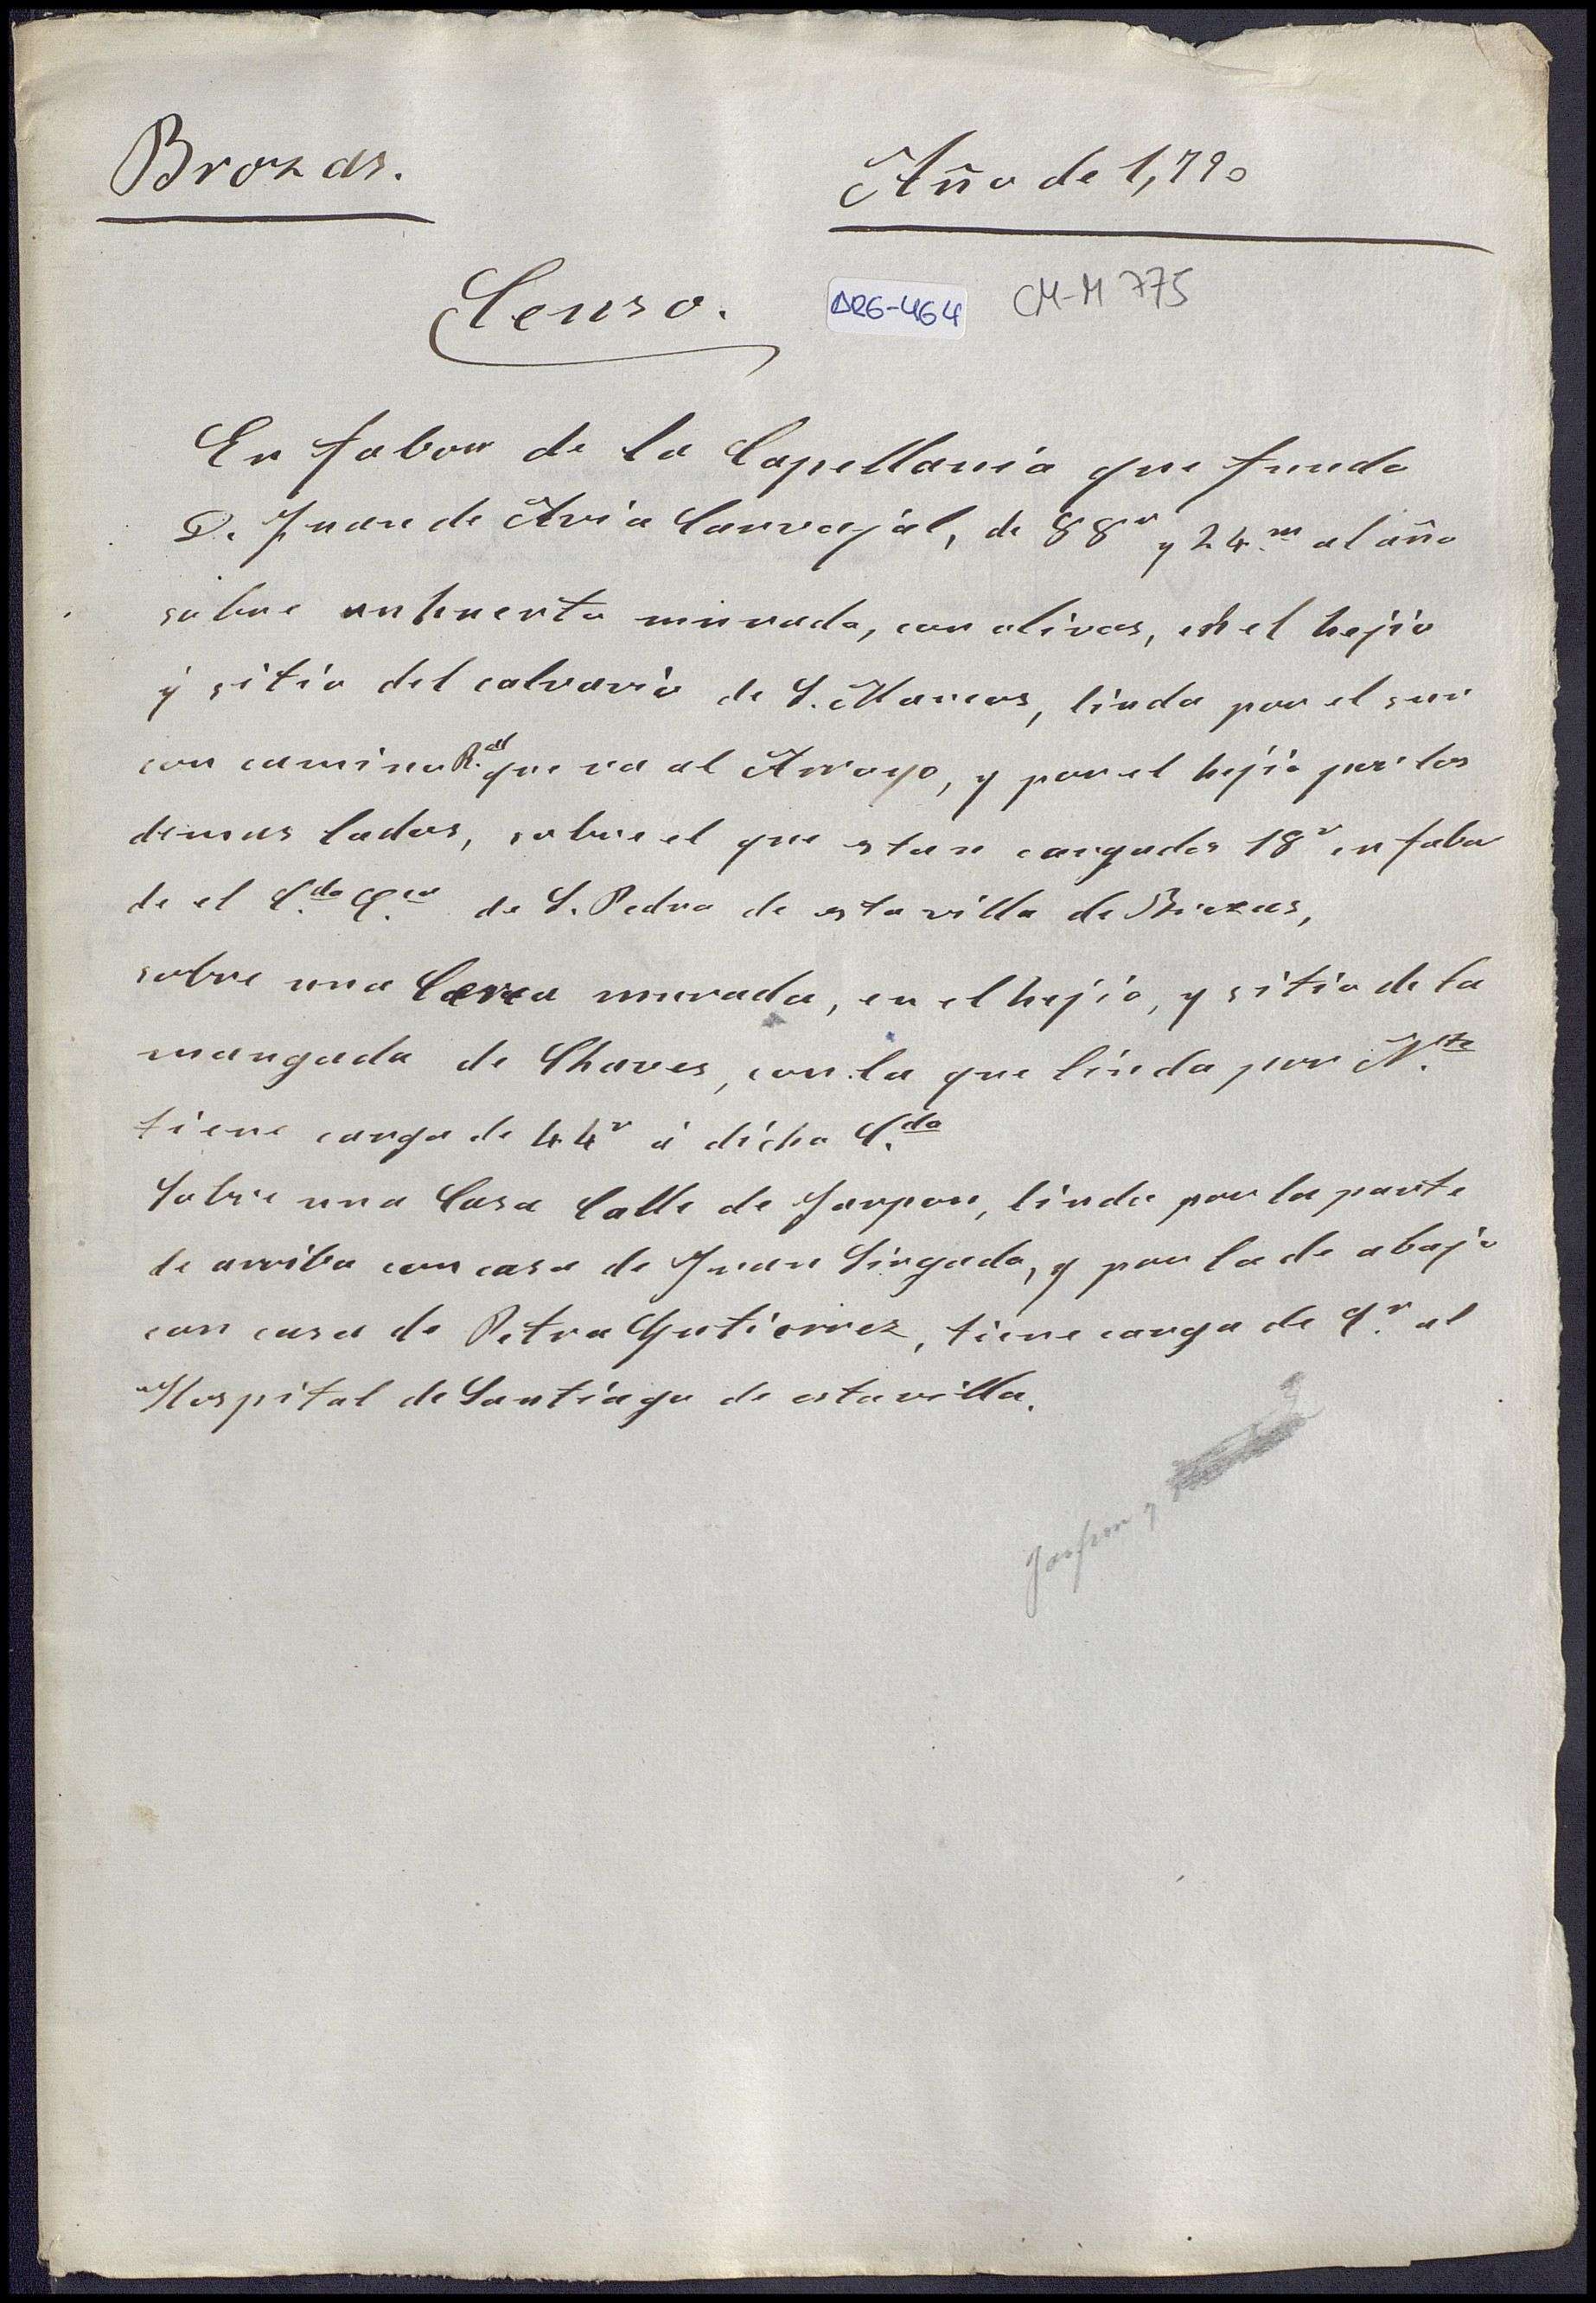 Brozas.
Año de 1,790
Censo.
ARG-464
CM-M 775
En fabor de la Capellania que fundo
D. Juan de Avia Carvajal, de 88.r y 24.m al año
sobre un huerto murado, con olivos, en el hejio
y sitio del calvario de S. Marcos, linda por el sur
con camino R.al que va al Arroyo, y por el hejio por los
demas lados, sobre el que estan cargados 18r en fabor
de el C.do de S. Pedro de esta villa de Brozas,
sobre una Cerca murada, en el hejio, y sitio de la
mangada de Chaves, con la que linda por N.te
tiene carga de 44r á dicho C.do
Sobre una Casa Calle de Jarpon, linda por la parte
de arriba con casa de Juan Singado, y por la de abajo
con casa de Petra Gutierrez, tiene carga de 9.r al
Hospital de Santiago de esta villa.